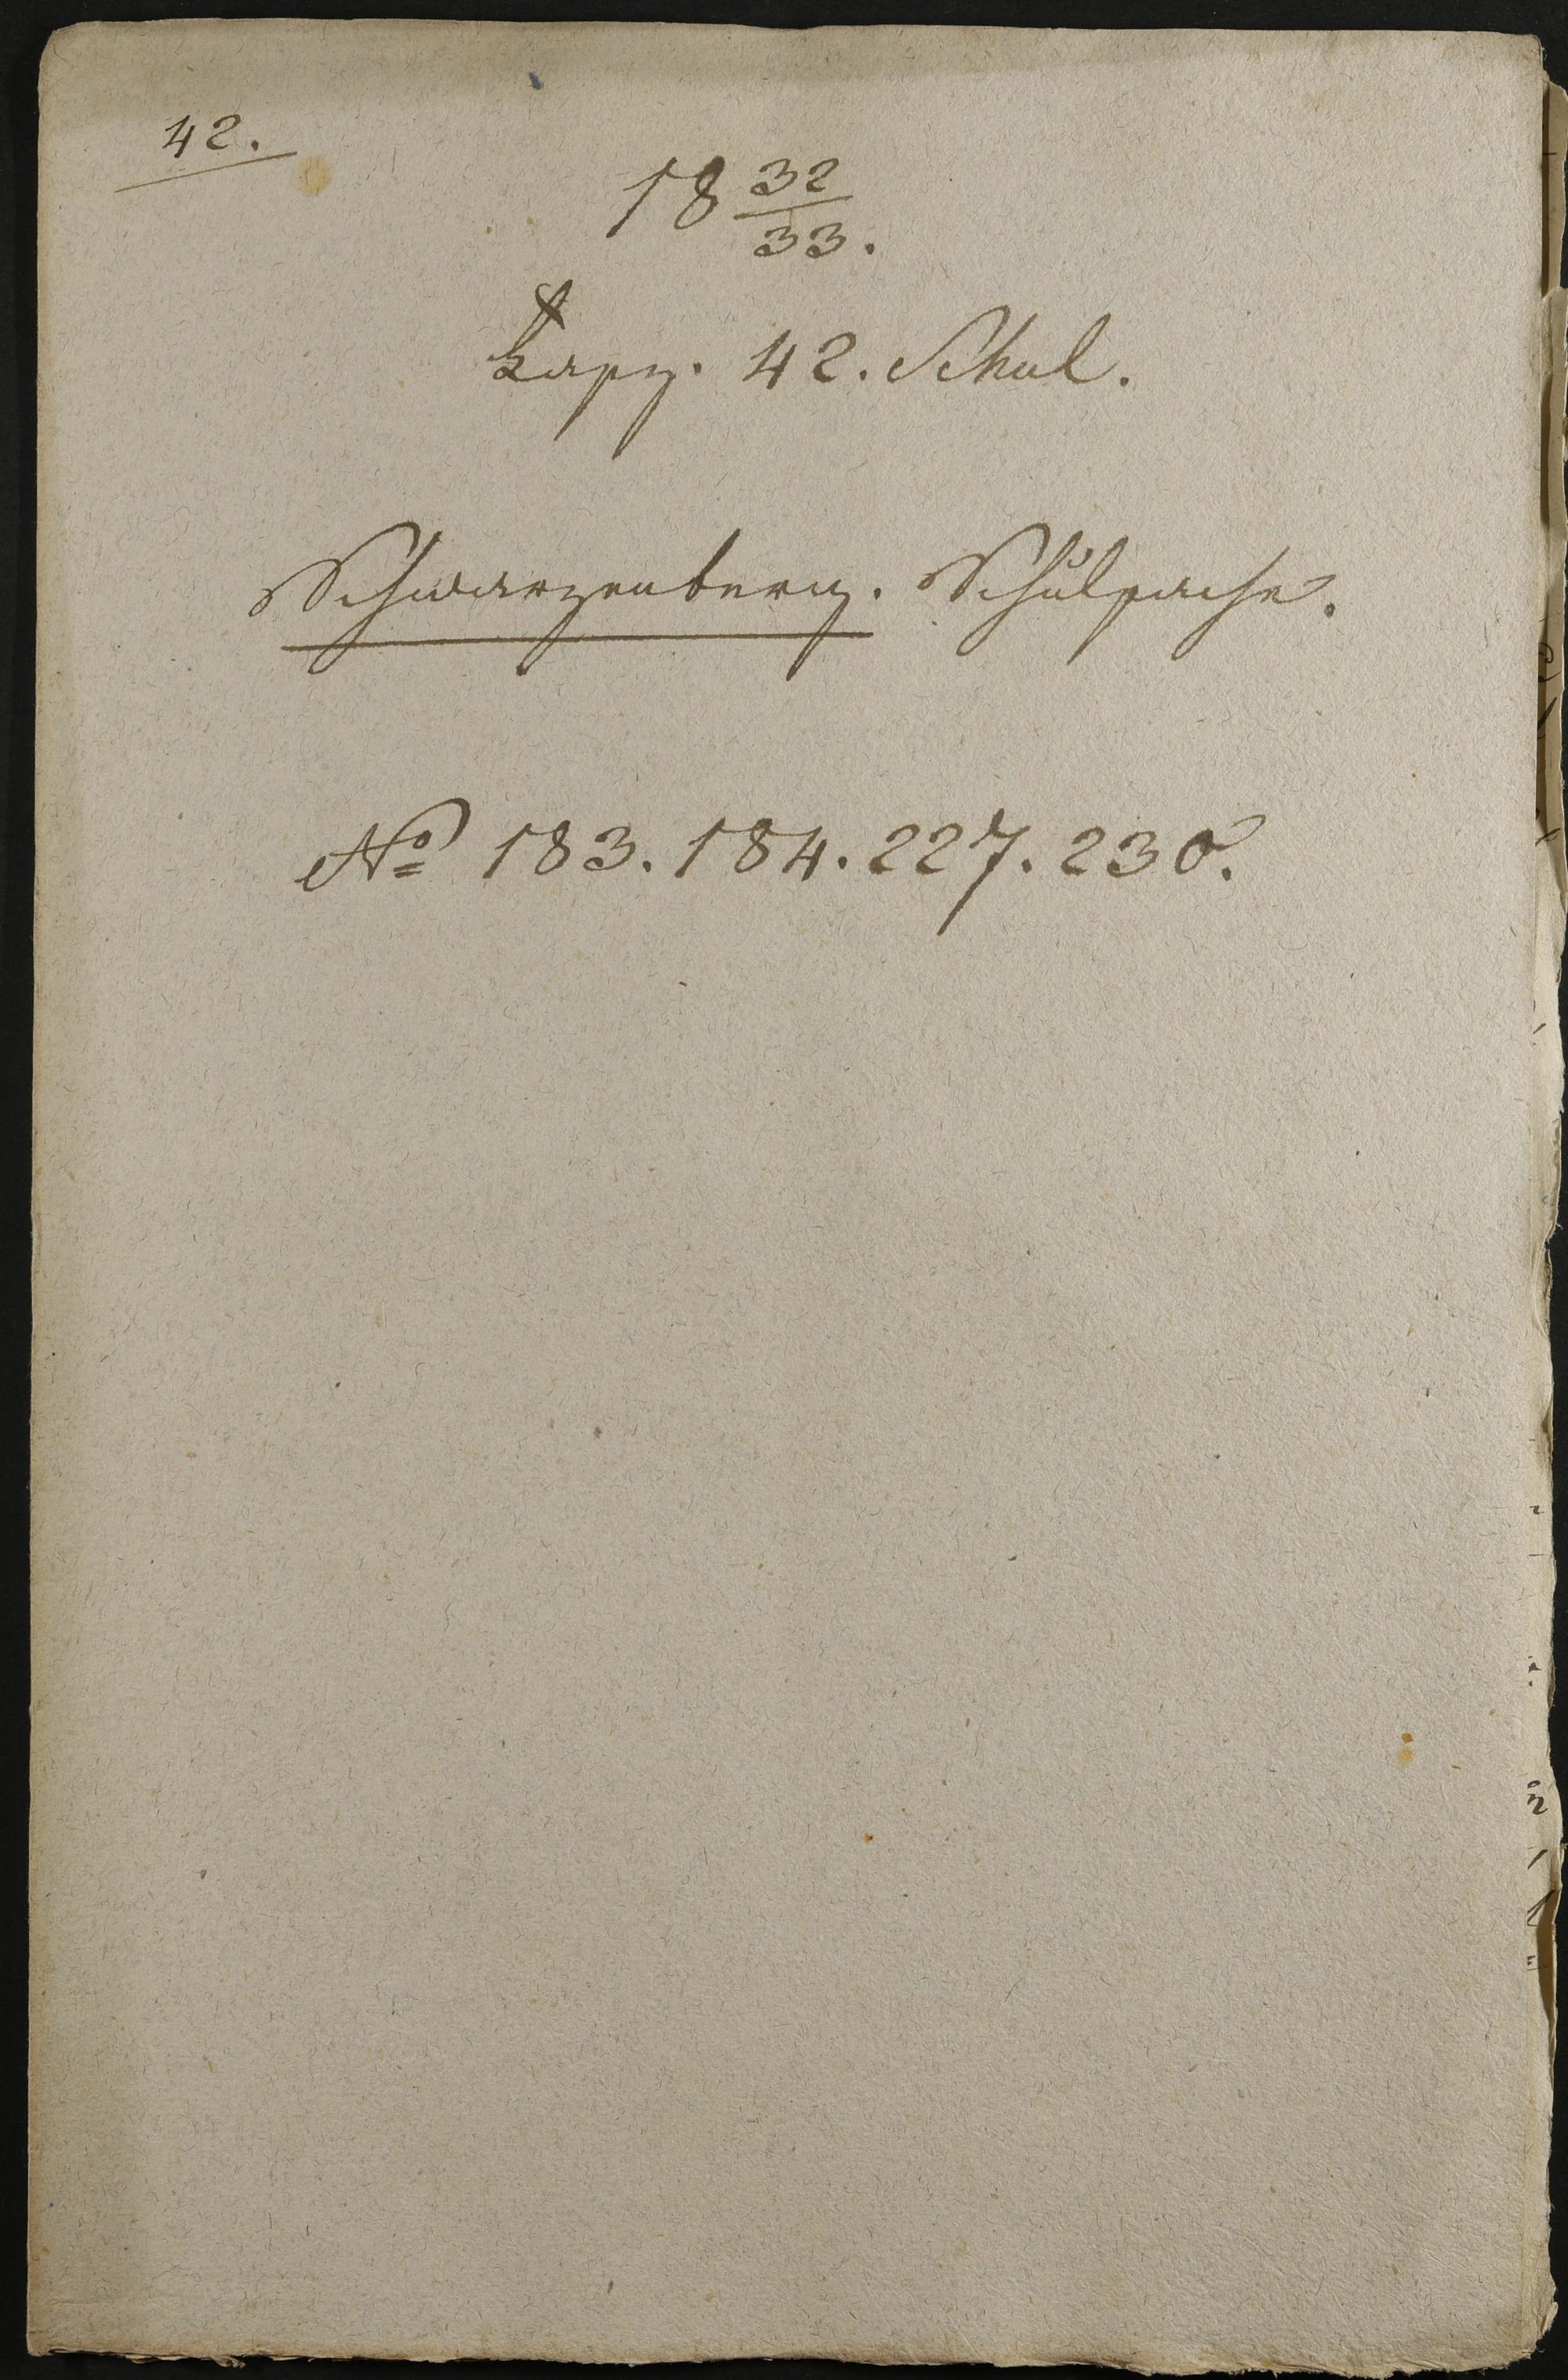 42.
18 32/33.
Kapz. 42. Schul.
Schwarzenberg. Schulsache.
No 183. 184. 227. 230.